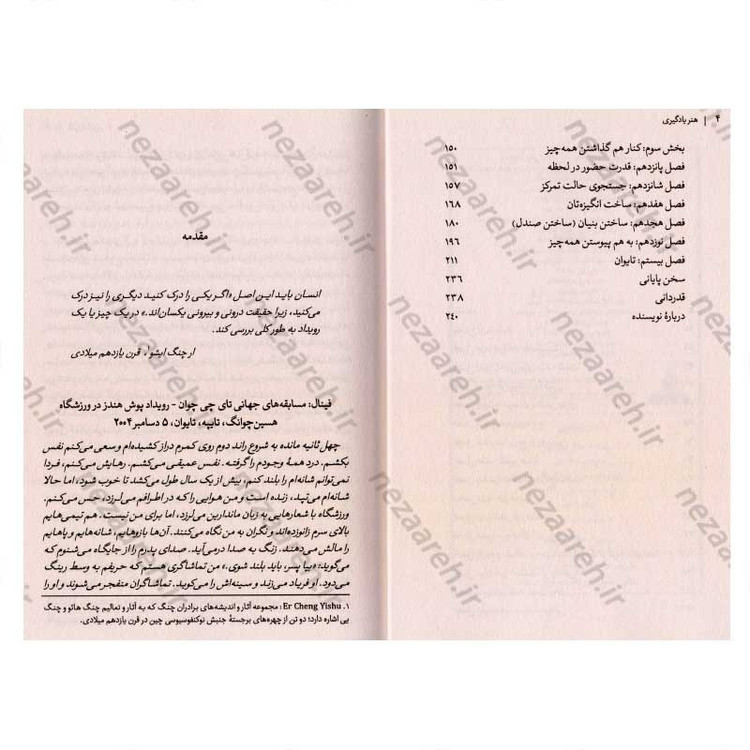 ۴ | هنر یادگیری
بخش سوم: کنار هم گذاشتن همه‌چیز ۱۵۰
فصل پانزدهم: قدرت حضور در لحظه ۱۵۱
فصل شانزدهم: جستجوی حالت تمرکز ۱۵۷
فصل هفدهم: ساخت انگیزه‌تان ۱۶۸
فصل هجدهم: ساختن بنیان (ساختن صندل) ۱۸۰
فصل نوزدهم: به هم پیوستن همه‌چیز ۱۹۶
فصل بیستم: تایوان ۲۱۱
سخن پایانی ۲۳۶
قدردانی ۲۳۸
دربارهٔ نویسنده ۲۴۰
مقدمه
انسان باید این اصل «اگر یکی را درک کنید دیگری را نیز درک
می‌کنید، زیرا حقیقت درونی و بیرونی یکسان‌اند.» در یک چیز یا یک
رویداد به طور کلی بررسی کند.
ار چنگ ایشو۱، قرن یازدهم میلادی
فینال: مسابقه‌های جهانی تای چی چوان - رویداد پوش هندز در ورزشگاه
هسین‌چوانگ، تایپه، تایوان، ۵ دسامبر ۲۰۰۴
چهل ثانیه مانده به شروع راند دوم روی کمرم دراز کشیده‌ام و سعی می‌کنم نفس
بکشم. درد همهٔ وجودم را گرفته. نفس عمیقی می‌کشم. رهایش می‌کنم. فردا
نمی‌توانم شانه‌ام را بلند کنم، بیش از یک سال طول می‌کشد تا خوب شود، اما حالا
شانه‌ام می‌تپد، زنده است و من هوایی را که در اطرافم می‌لرزد، حس می‌کنم.
ورزشگاه با شعارهایی به زبان ماندارین می‌لرزد، اما برای من نیست. هم تیمی‌هایم
بالای سرم زانو زده‌اند و نگران به من نگاه می‌کنند. آن‌ها بازوهایم، شانه‌هایم و پاهایم
را مالش می‌دهند. زنگ به صدا درمی‌آید. صدای پدرم را از جایگاه می‌شنوم که
می‌گوید: «بیا پسر، باید بلند شوی.» من تماشاگری هستم که حریفم به وسط رینگ
می‌دود. او فریاد می‌زند و سینه‌اش را می‌کوبد. تماشاگران منفجر می‌شوند و او را
۱. Er Cheng Yishu: مجموعه آثار و اندیشه‌های برادران چنگ که به آثار و تعالیم چنگ هائو و چنگ
یی اشاره دارد؛ دو تن از چهره‌های برجستهٔ جنبش نوکنفوسیوسی چین در قرن یازدهم میلادی.
nezaareh.ir
nezaareh.ir
nezaareh.ir
nezaareh.ir
nezaareh.ir
nezaareh.ir
nezaareh.ir
nezaareh.ir